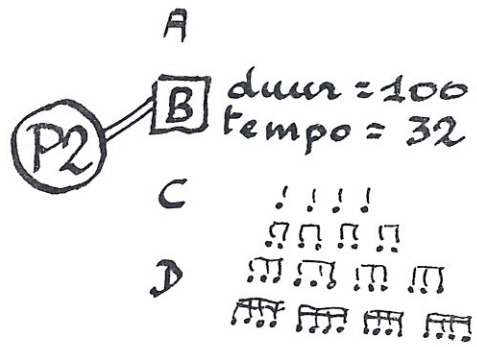 A
P2 B duur = 100
tempo = 32
C
D